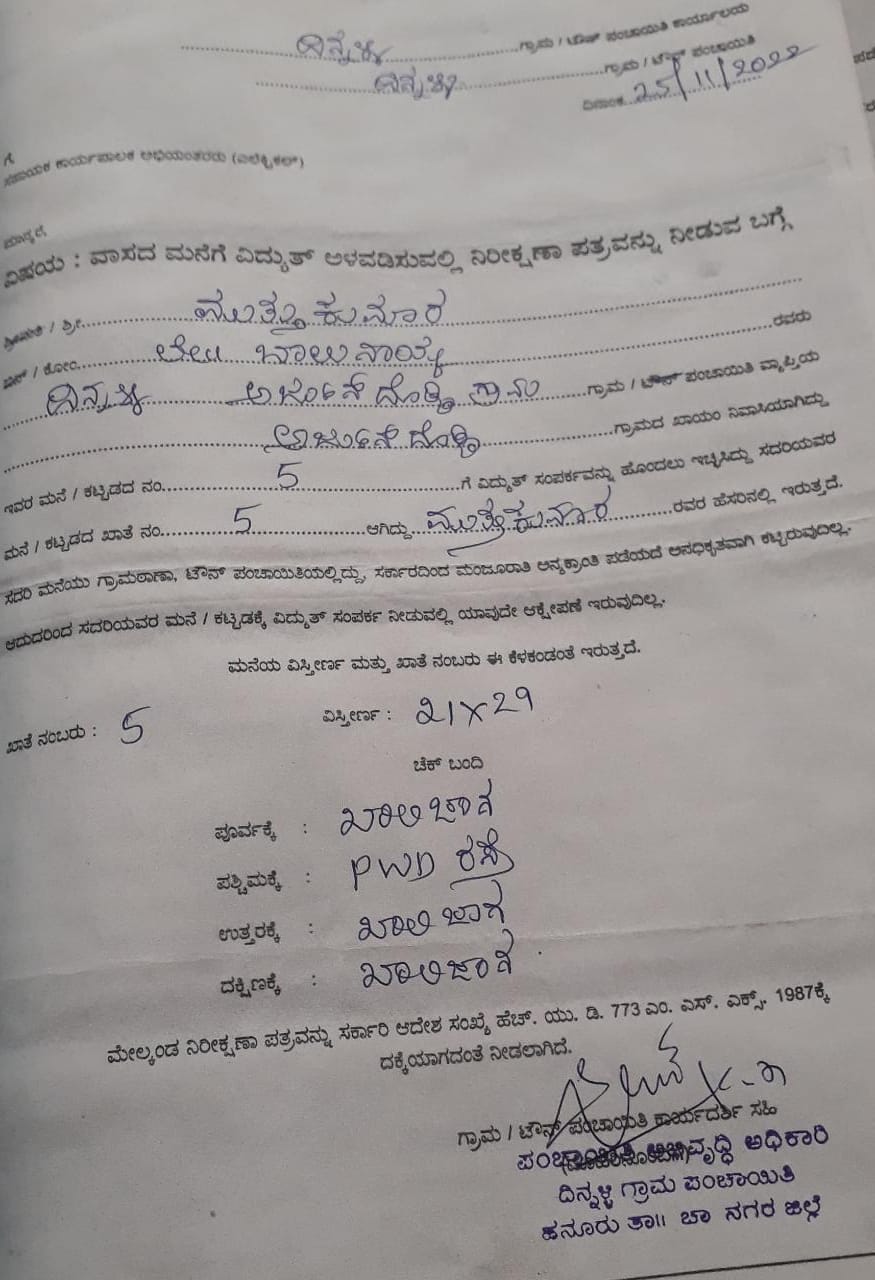 ದಿನ್ನಳ್ಳಿ ಗ್ರಾಮ / ಟೌನ್ ಪಂಚಾಯಿತಿ ಕಾರ್ಯಾಲಯ
ದಿನ್ನಳ್ಳಿ ಗ್ರಾಮ / ಟೌನ್ ಪಂಚಾಯಿತಿ
ದಿನಾಂಕ 25/11/2022
ಗೆ
ಸಹಾಯಕ ಕಾರ್ಯಪಾಲಕ ಅಭಿಯಂತರರು (ಎಲೆಕ್ಟ್ರಿಕಲ್)
ಮಾನ್ಯರೆ,
ವಿಷಯ : ವಾಸದ ಮನೆಗೆ ವಿದ್ಯುತ್ ಅಳವಡಿಸುವಲ್ಲಿ ನಿರೀಕ್ಷಣಾ ಪತ್ರವನ್ನು ನೀಡುವ ಬಗ್ಗೆ
ಶ್ರೀಮತಿ / ಶ್ರೀ. ಮುತ್ತುಕುಮಾರ
ಬಿನ್ / ಕೋಂ. ಲೇ॥ ಬಾಲುನಾಯ್ಕ ರವರು
ದಿನ್ನಳ್ಳಿ ಅರ್ಜುನ್ ದೊಡ್ಡಿ ಗ್ರಾಮ ಗ್ರಾಮ / ಟೌನ್ ಪಂಚಾಯಿತಿ ವ್ಯಾಪ್ತಿಯ
ಅರ್ಜುನ್ ದೊಡ್ಡಿ ಗ್ರಾಮದ ಖಾಯಂ ನಿವಾಸಿಯಾಗಿದ್ದು
ಇವರ ಮನೆ / ಕಟ್ಟಡದ ನಂ. 5 ಗೆ ವಿದ್ಯುತ್ ಸಂಪರ್ಕವನ್ನು ಹೊಂದಲು ಇಚ್ಛಿಸಿದ್ದು ಸದರಿಯವರ
ಮನೆ / ಕಟ್ಟಡದ ಖಾತೆ ನಂ. 5 ಆಗಿದ್ದು ಮುತ್ತುಕುಮಾರ ರವರ ಹೆಸರಿನಲ್ಲಿ ಇರುತ್ತದೆ.
ಸದರಿ ಮನೆಯು ಗ್ರಾಮಠಾಣಾ, ಟೌನ್ ಪಂಚಾಯಿತಿಯಲ್ಲಿದ್ದು, ಸರ್ಕಾರದಿಂದ ಮಂಜೂರಾತಿ ಅನ್ಯಕ್ರಾಂತಿ ಪಡೆಯದೆ ಅನಧಿಕೃತವಾಗಿ ಕಟ್ಟಿರುವುದಿಲ್ಲ.
ಆದುದರಿಂದ ಸದರಿಯವರ ಮನೆ / ಕಟ್ಟಡಕ್ಕೆ ವಿದ್ಯುತ್ ಸಂಪರ್ಕ ನೀಡುವಲ್ಲಿ ಯಾವುದೇ ಆಕ್ಷೇಪಣೆ ಇರುವುದಿಲ್ಲ.
ಮನೆಯ ವಿಸ್ತೀರ್ಣ ಮತ್ತು ಖಾತೆ ನಂಬರು ಈ ಕೆಳಕಂಡಂತೆ ಇರುತ್ತದೆ.
ಖಾತೆ ನಂಬರು : 5 ವಿಸ್ತೀರ್ಣ : 21 X 29
ಚೆಕ್ ಬಂದಿ
ಪೂರ್ವಕ್ಕೆ : ಖಾಲಿ ಜಾಗ
ಪಶ್ಚಿಮಕ್ಕೆ : PWD ರಸ್ತೆ
ಉತ್ತರಕ್ಕೆ : ಖಾಲಿ ಜಾಗ
ದಕ್ಷಿಣಕ್ಕೆ : ಖಾಲಿ ಜಾಗ
ಮೇಲ್ಕಂಡ ನಿರೀಕ್ಷಣಾ ಪತ್ರವನ್ನು ಸರ್ಕಾರಿ ಆದೇಶ ಸಂಖ್ಯೆ ಹೆಚ್. ಯು. ಡಿ. 773 ಎಂ. ಎಸ್. ಎಕ್ಸ್. 1987ಕ್ಕೆ
ದಕ್ಕೆಯಾಗದಂತೆ ನೀಡಲಾಗಿದೆ.
ಗ್ರಾಮ / ಟೌನ್ ಪಂಚಾಯಿತಿ ಕಾರ್ಯದರ್ಶಿ ಸಹಿ
ಪಂಚಾಯಿತಿ ಅಭಿವೃದ್ಧಿ ಅಧಿಕಾರಿ
ದಿನ್ನಳ್ಳಿ ಗ್ರಾಮ ಪಂಚಾಯಿತಿ
ಹನೂರು ತಾ॥ ಚಾ ನಗರ ಜಿಲ್ಲೆ